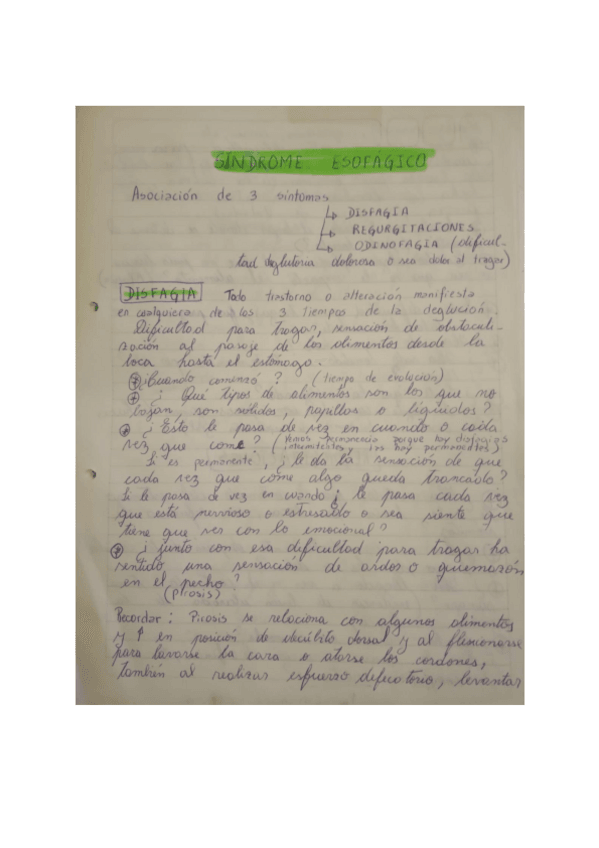 SÍNDROME ESOFÁGICO
Asociación de 3 síntomas
DISFAGIA
REGURGITACIONES
ODINOFAGIA (dificul-
tad deglutoria dolorosa o sea dolor al tragar)
DISFAGIA Todo trastorno o alteración manifiesta
en cualquiera de los 3 Tiempos de la deglución.
Dificultad para tragar, sensación de obstaculi-
zación al pasaje de los alimentos desde la
boca hasta el estómago.
¿Cuando comenzó? (tiempo de evolución)
¿Qué tipos de alimentos son los que no
bajan, son sólidos, papillas o líquidos?
¿Esto le pasa de vez en cuando o cada
vez que come? (Vemos permanencia porque hay disfagias
intermitentes y las hay permanentes).
Si es permanente, ¿le da la sensación de que
cada vez que come algo queda trancado?
Si le pasa de vez en cuando ¿le pasa cada vez
que está nervioso o estresado o sea siente que
tiene que ver con lo emocional?
¿junto con esa dificultad para tragar ha
sentido una sensación de ardor o quemazón
en el pecho?
(pirosis)
Recordar: Pirosis se relaciona con algunos alimentos
y ↑ en posición de decúbito dorsal y al flexionarse
para lavarse la cara o atarse los cordones,
también al realizar esfuerzo defecatorio, levantar